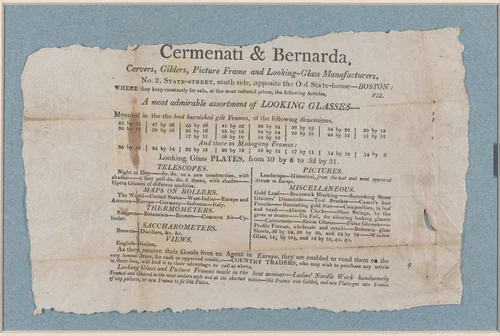 Cermenati & Bernarda,
Carvers, Gilders, Picture Frame and Looking-Glass Manufacturers,
No. 2, STATE-STREET, south side, opposite the Old State-house—BOSTON:
WHERE they keep constantly for sale, at the most reduced prices, the following Articles, VIZ.
A most admirable assortment of LOOKING GLASSES—
Mounted in the the best burnished gilt Frames, of the following dimensions,
And those in Mahogany Frames:
Looking Glass PLATES, from 10 by 8 to 52 by 31.
TELESCOPES.
Night or Day— do. do. on a new construction, with
shades—2 feet pull do. do. 3 draws, with shades—
Opera Glasses of different qualities.
MAPS ON ROLLERS.
The World—United States—West-Indies—Europe and
America—Europe—Germany—Indostan—Italy.
THERMOMETERS.
Rangers—Botanic—Brewers—Common Air—Cy-
linder.
SACCHAROMETERS.
Brewers—Ditto, &c. &c.
VIEWS.
English—Italian.
PICTURES.
Landscape—Historical, from the best and most approved
Artists in Europe.
MISCELLANEOUS.
Gold Leaf—Brunswick Blacking—Burnishing Stones
Glaziers' Diamonds—Tool Brushes—Camel's hair
Pencils—Burnishing gold Size—Composition, in leaf
and bead—Alarum Clocks—Shoe Strings, by the
gross or dozen—Tin Foil, for silvering looking glasses
—Caricatures—Stone Pencils—Glass Pictures—
Profile Frames, wholesale and retail—Bohemia glass
As they receive their Goods from an Agent in Europe, they are enabled to vend them on the
very lowest terms, for cash or approved credit.—COUNTRY TRADERS, who may wish to purchase any article
in their line, will find it to their advantage to call as above.
Looking Glass and Pictures made in the best manner—Ladies' Needle Work handsomely
Framed and Glazed in the most modern style and at the shortest notice—Old Frames new Gilded, and new Plates put into Frames
of any pattern, or new Frames to fit Old Plates.